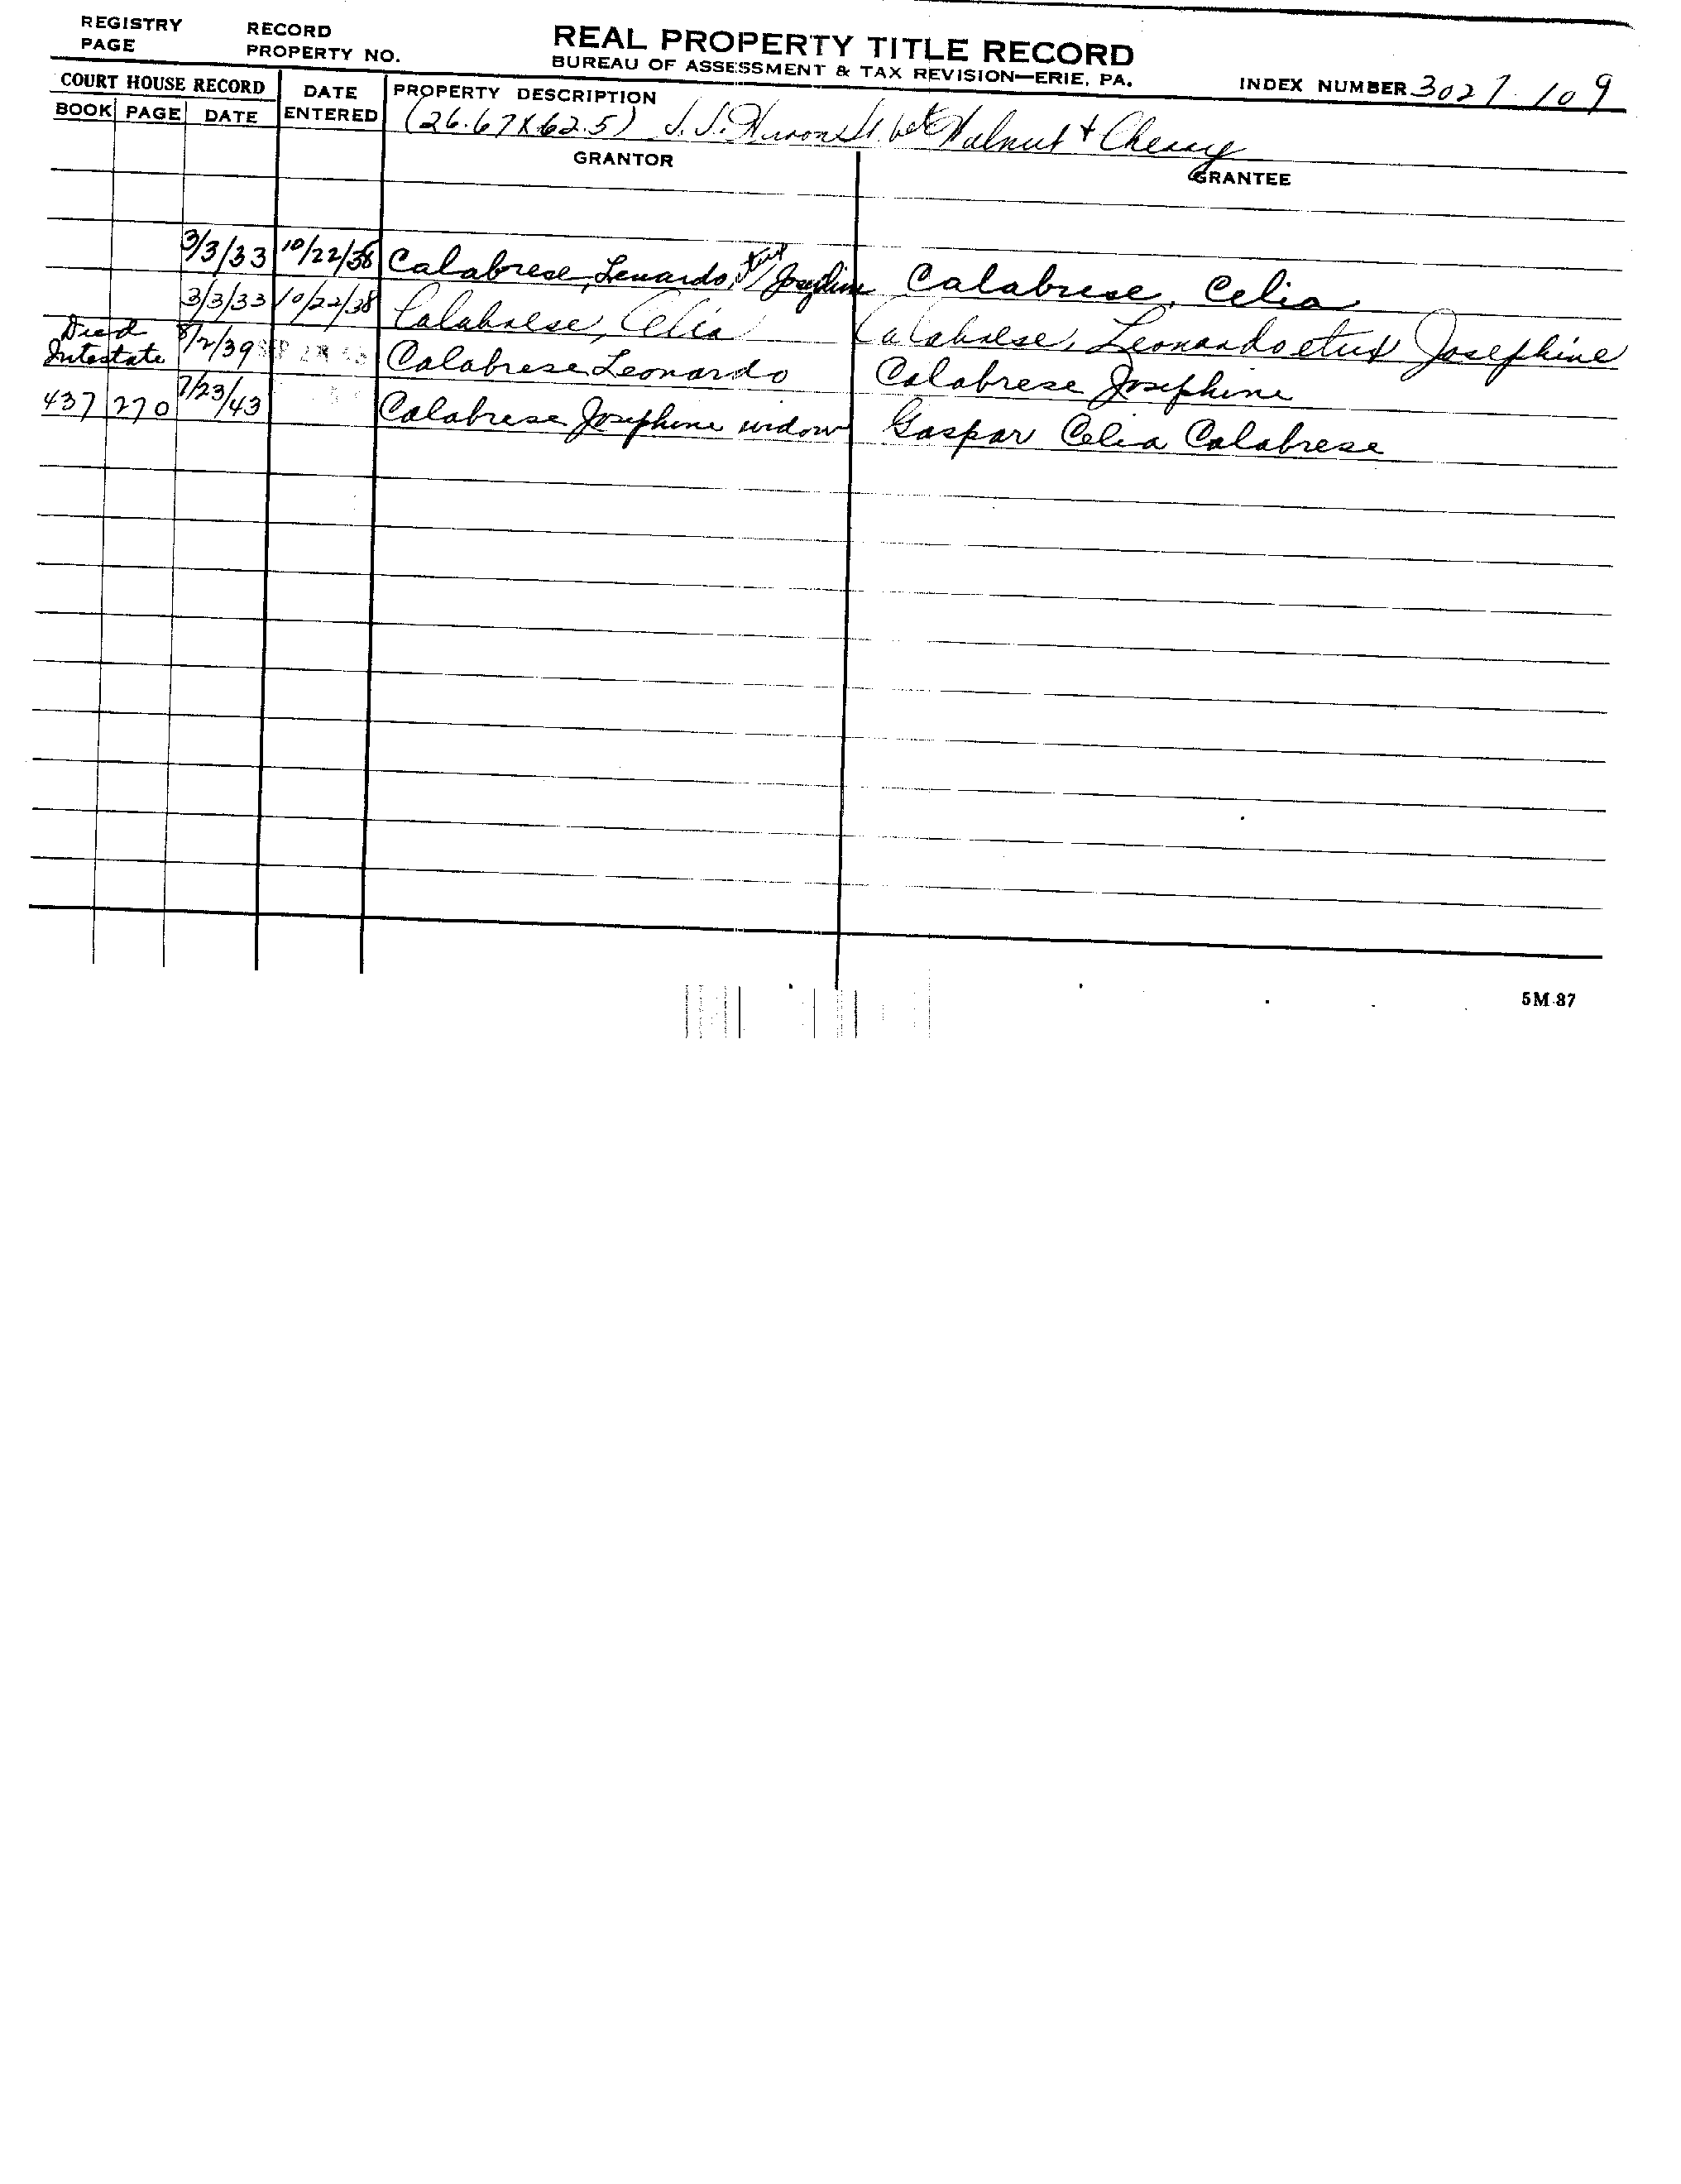 REGISTRY PAGE RECORD PROPERTY NO. REAL PROPERTY TITLE RECORD
BUREAU OF ASSESSMENT & TAX REVISION—ERIE, PA. INDEX NUMBER 3027 109
COURT HOUSE RECORD DATE ENTERED PROPERTY DESCRIPTION
BOOK PAGE DATE (26.67 X 62.5) Huron St. bet Walnut + Cherry
GRANTOR GRANTEE
3/3/33 10/22/38 Calabrese, Lenardo, et ux Josephine Calabrese, Celia
3/3/33 10/22/38 Calabrese, Celia Calabrese, Leonardo et ux Josephine
Died Intestate 8/2/39 SEP 28 43 Calabrese Leonardo Calabrese Josephine
437 270 7/23/43 Calabrese Josephine widow Gaspar Celia Calabrese
5M-87